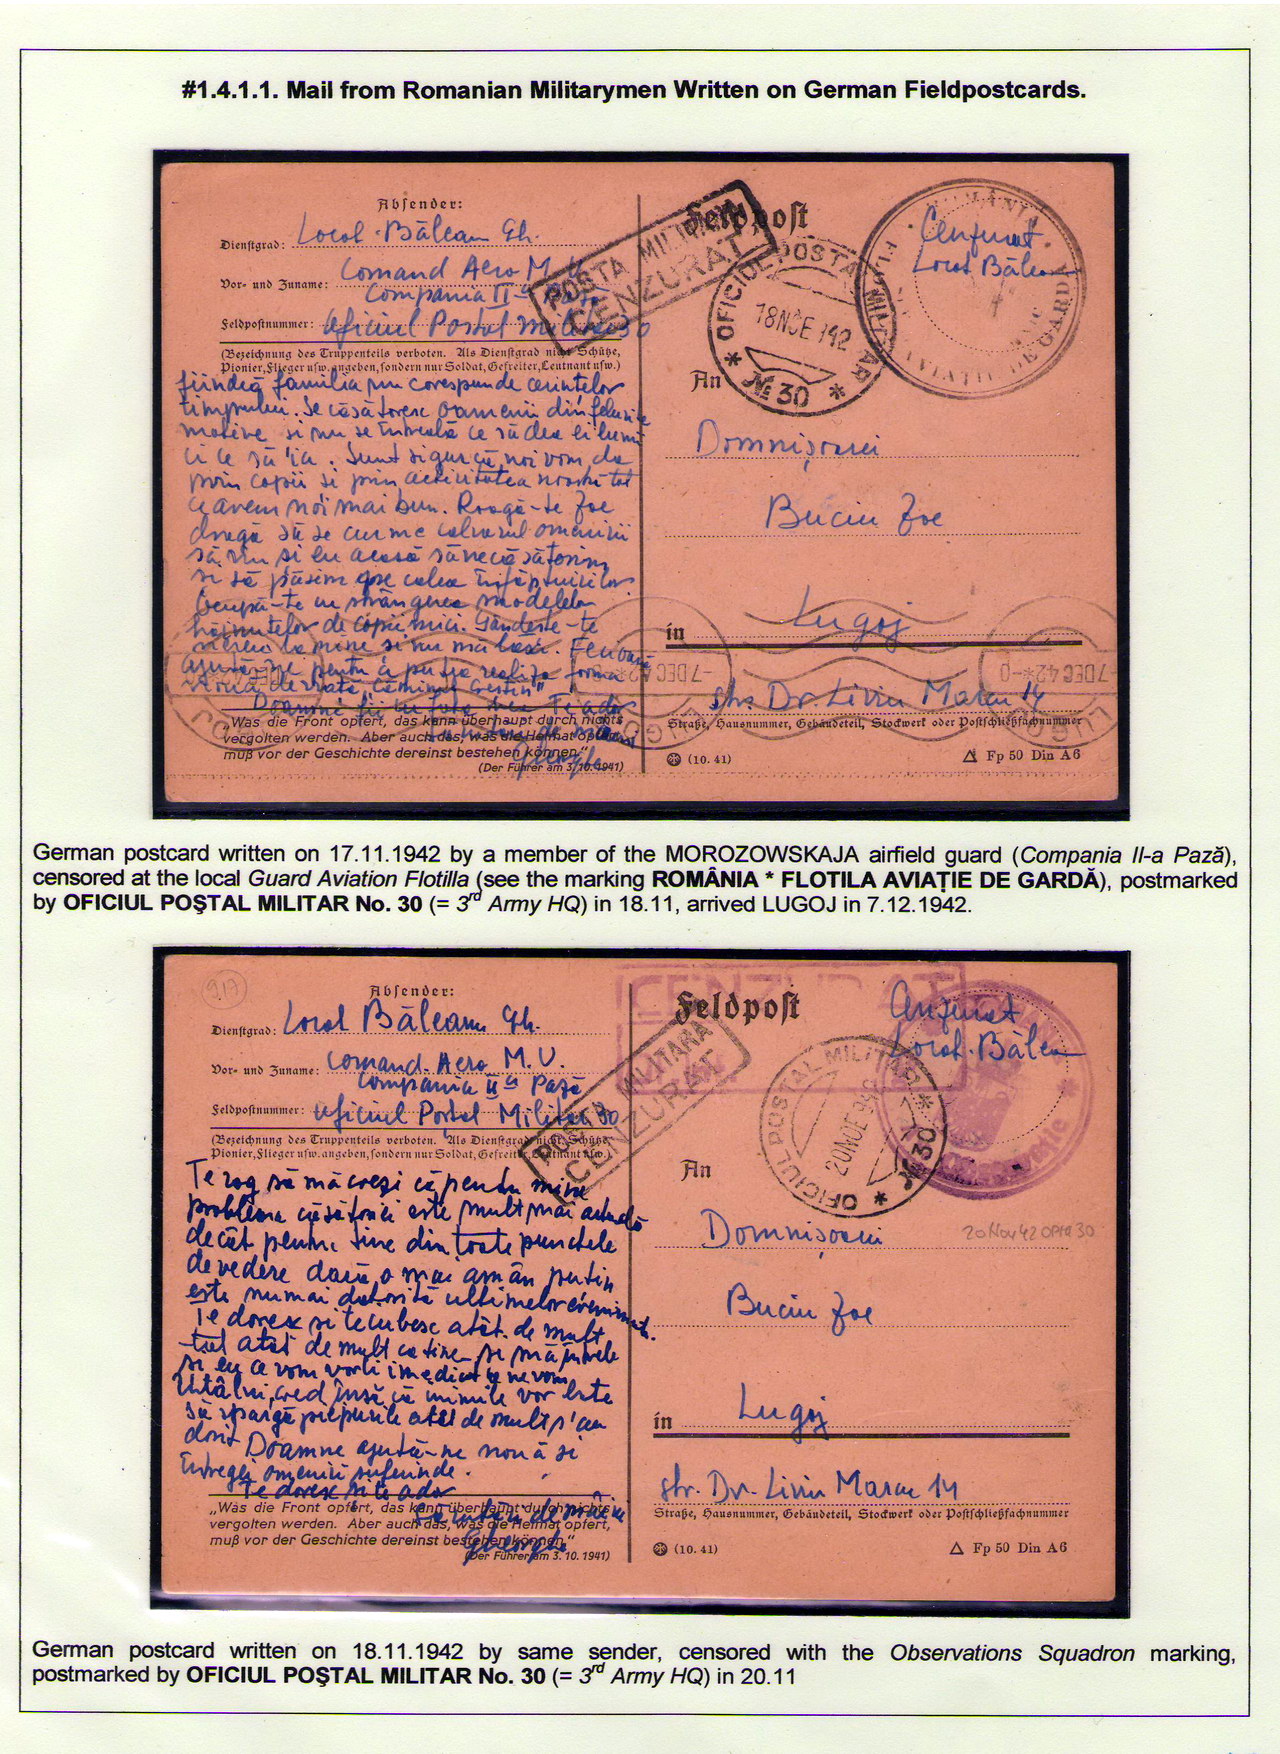 #1.4.1.1. Mail from Romanian Militarymen Written on German Fieldpostcards.
Absender:
Dienstgrad: Locot. Bălean Gh.
Comand Aero M.
Vor- und Zuname:
Compania II-a Pază
Feldpostnummer: Oficiul Postal militar 30
(Bezeichnung des Truppenteils verboten. Als Dienstgrad nicht Schütze,
Pionier, Flieger usw. angeben, sondern nur Soldat, Gefreiter, Leutnant usw.)
fiindcă familia nu corespunde cerințelor
timpului. Se căsătoresc oamenii din felurite
motive și nu se întreabă ce să dea ei lumii
ci ce să ia. Sunt sigur că noi vom da
prin copii și prin activitatea noastră tot
ce avem noi mai bun. Roagă-te Zoe
dragă să se curme calvarul omenirii
să viu și eu acasă să ne căsătorim
și să pășim spre calea înfăptuirilor
Ocupă-te cu strângerea modelelor
hăinuțelor de copii mici. Gândește-te
mereu la mine și nu mă lăsa.
ajută-ne pentru a putea realiza forma
de viață „Căminul Creștin"
Doamne Te ador
Gheorghe
„Was die Front opfert, das kann überhaupt durch nichts
vergolten werden. Aber auch das, was die Heimat opfert,
muß vor der Geschichte dereinst bestehen können."
(Der Führer am 3. 10. 1941)
POSTA MILITARA
CENZURAT
Feldpost
OFICIUL POSTAL MILITAR
18 NOE 942
* № 30 *
ROMÂNIA
FLOTILA AVIAȚIE DE GARDĂ
Cenzurat
Locot Bălean
An
Domnișoarei
Buciu Zoe
in Lugoj
str. Dr. Liviu Marcu 14
Straße, Hausnummer, Gebäudeteil, Stockwerk oder Postschließfachnummer
(10. 41)
Fp 50 Din A6
LUGOJ
7 DEC 42
German postcard written on 17.11.1942 by a member of the MOROZOWSKAJA airfield guard (Compania II-a Pază),
censored at the local Guard Aviation Flotilla (see the marking ROMÂNIA * FLOTILA AVIAȚIE DE GARDĂ), postmarked
by OFICIUL POȘTAL MILITAR No. 30 (= 3rd Army HQ) in 18.11, arrived LUGOJ in 7.12.1942.
917
Absender:
Dienstgrad: Locot Băleanu Gh.
Vor- und Zuname: Comand. Aero M.V.
Compania II a Pază
Feldpostnummer: Oficiul Poștal Militar 30
(Bezeichnung des Truppenteils verboten. Als Dienstgrad nicht Schütze,
Pionier, Flieger usw. angeben, sondern nur Soldat, Gefreiter, Leutnant usw.)
Te rog să mă crezi că pentru mine
problema căsătoriei este mult mai actuală
decât pentru tine din toate punctele
de vedere dacă o mai amân puțin
este numai datorită ultimelor evenimente.
Te doresc și te iubesc atât de mult
tot atât de mult ca tine și mă întreb
și eu ce vom vorbi imediat ce ne vom
întâlni, cred însă că inimile vor bate
să spargă piepturile atât de mult s'au
dorit Doamne ajută-ne nouă și
întregei omeniri suferinde.
Te doresc și te ador
Gheorghe
„Was die Front opfert, das kann überhaupt durch nichts
vergolten werden. Aber auch das, was die Heimat opfert,
muß vor der Geschichte dereinst bestehen können."
(Der Führer am 3. 10. 1941)
CENZURAT
POSTA MILITARA
CENZURAT
Feldpost
OFICIUL POSTAL MILITAR
20 NOE 942
* № 30 *
Cenzurat
Locot. Bălean
An
20 Nov 42 OPM 30
Domnișoarei
Buciu Zoe
in Lugoj
str. Dr. Liviu Marcu 14
Straße, Hausnummer, Gebäudeteil, Stockwerk oder Postschließfachnummer
(10. 41)
Fp 50 Din A6
German postcard written on 18.11.1942 by same sender, censored with the Observations Squadron marking,
postmarked by OFICIUL POȘTAL MILITAR No. 30 (= 3rd Army HQ) in 20.11